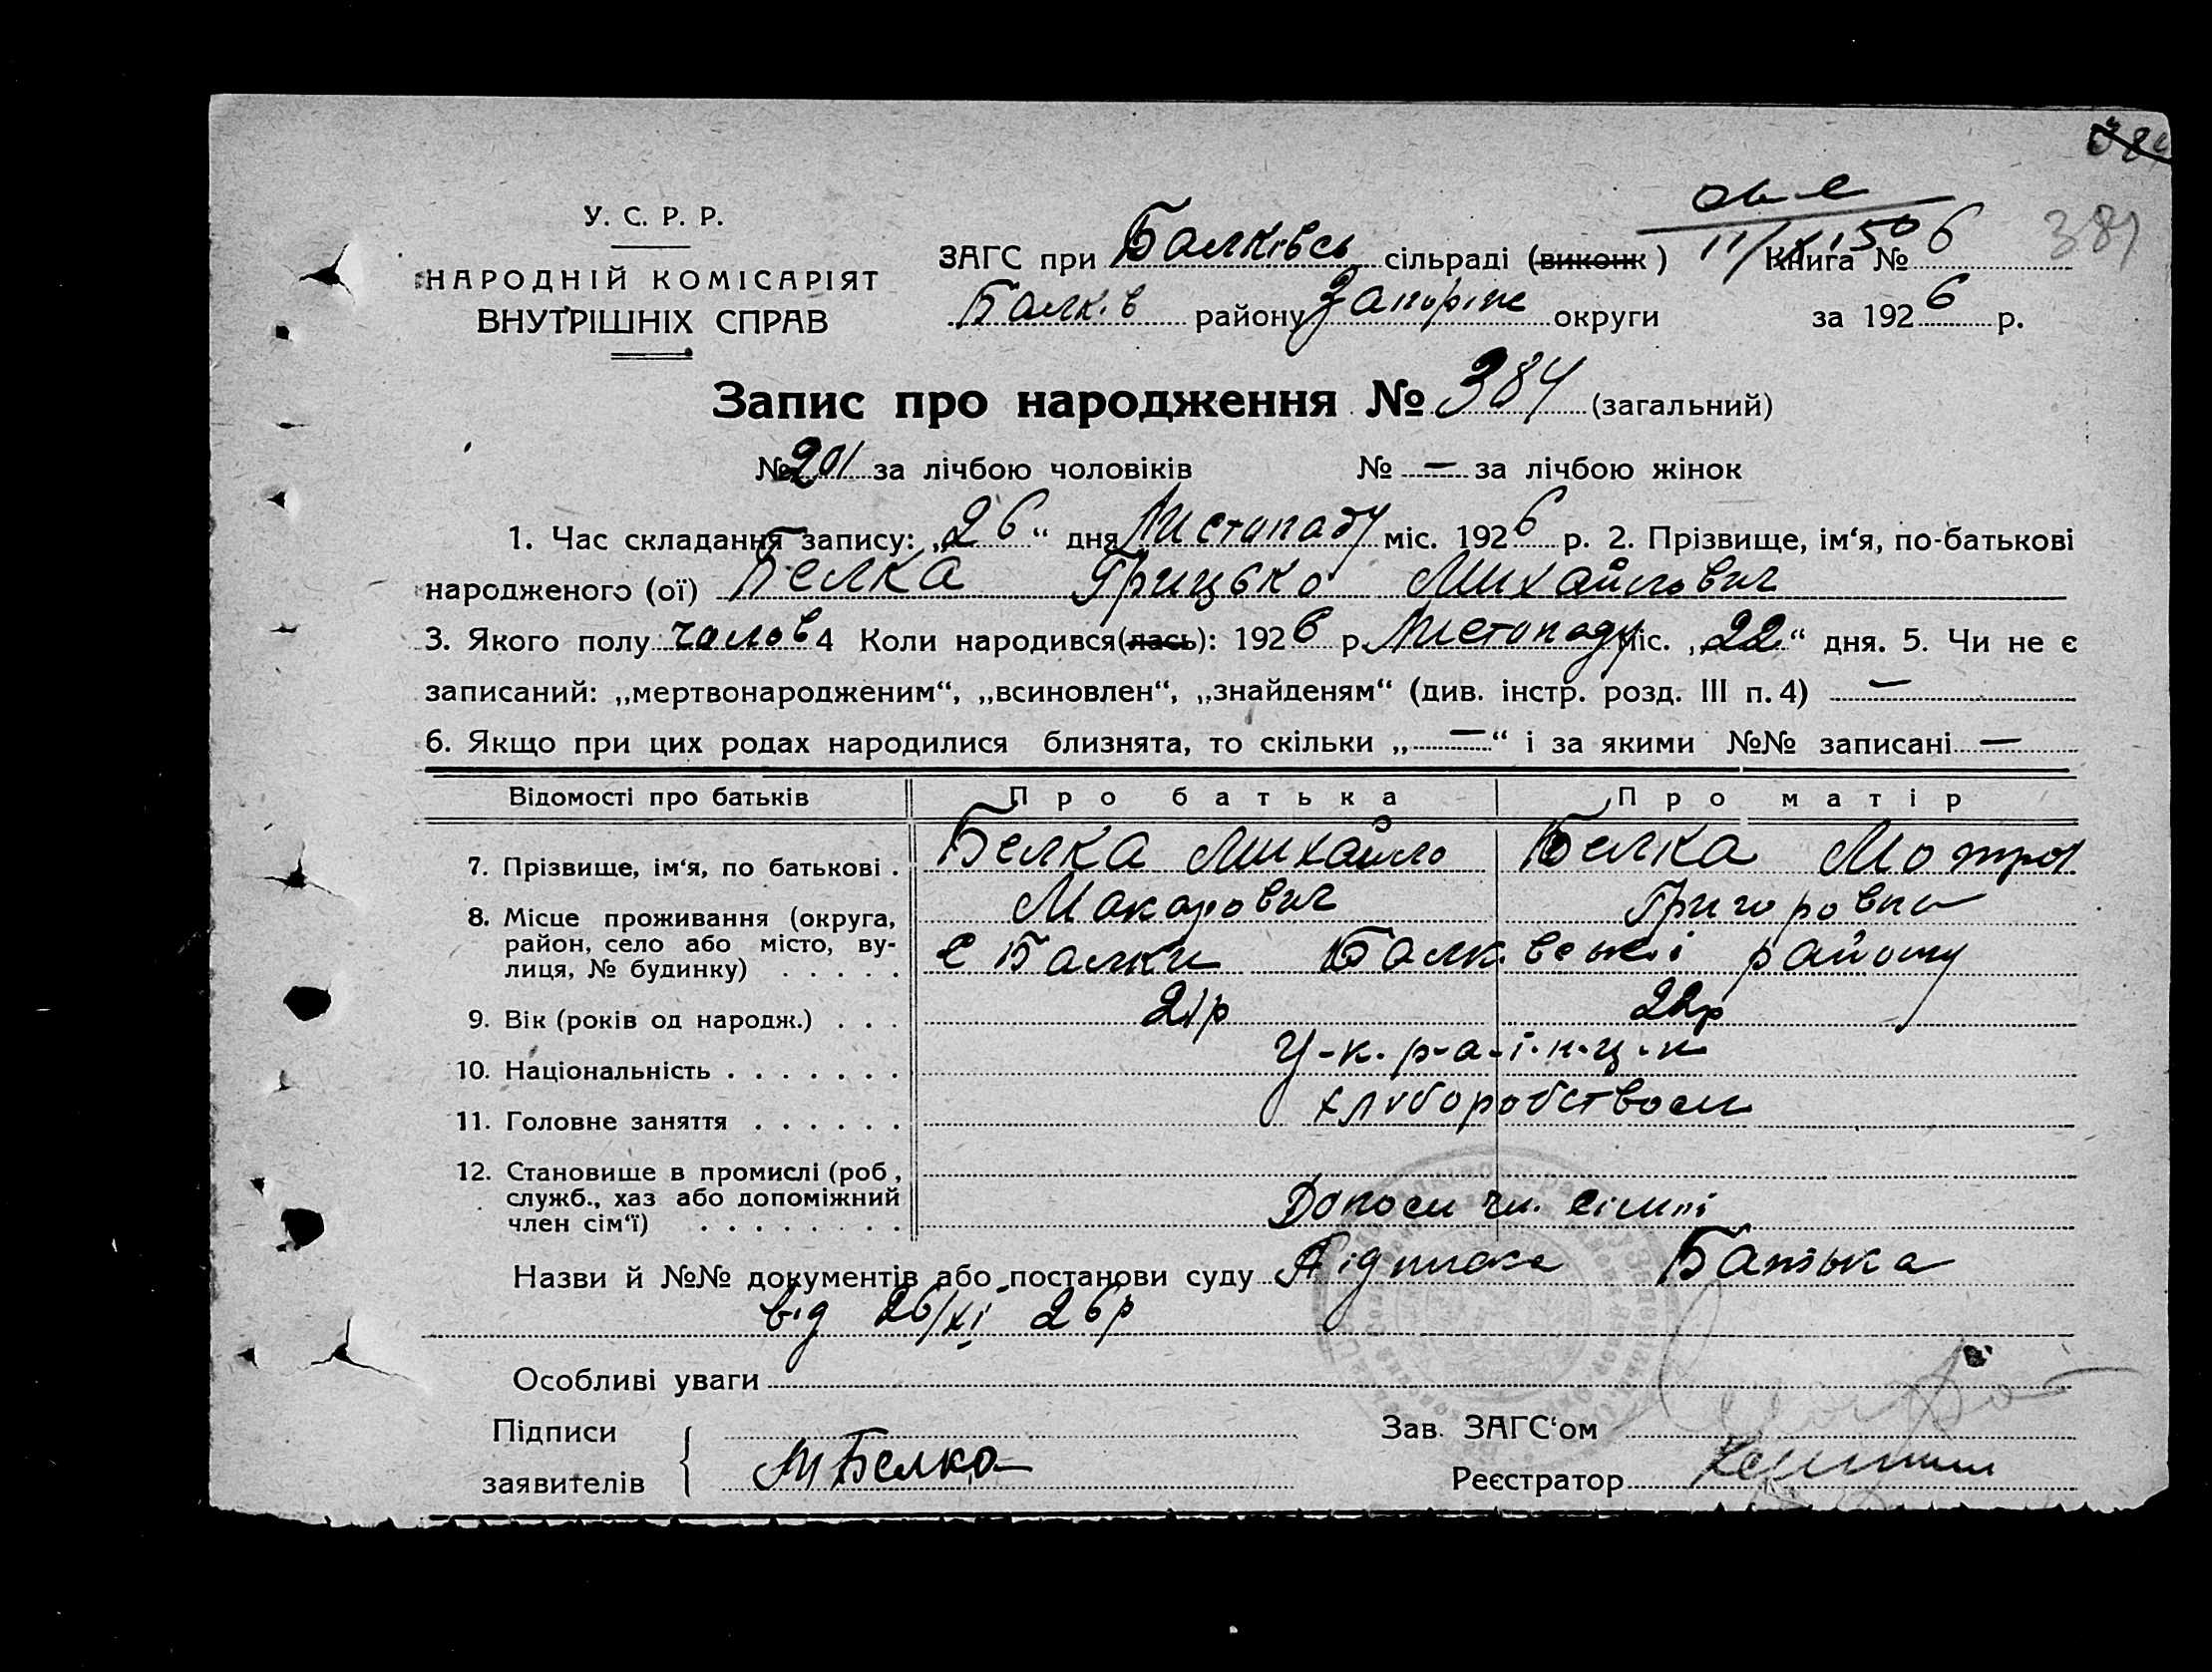 384
У. С. Р. Р.
НАРОДНІЙ КОМІСАРІЯТ
ВНУТРІШНІХ СПРАВ
ЗАГС при Балківсь сільраді (виконк) Книга № 6
381
Балків району Запоріж округи за 1926 р.
Запис про народження № 384 (загальний)
№ 201 за лічбою чоловіків № — за лічбою жінок
1. Час складання запису: „26“ дня Листопаду міс. 1926 р. 2. Прізвище, ім‘я, по-батькові
народженого (ої) Белка Грицько Михайлович
3. Якого полу чолов 4 Коли народився(лась): 1926 р. Листопаду міс. „22“ дня. 5. Чи не є
записаний: „мертвонародженим“, „всиновлен“, „знайденям“ (див. інстр. розд. III п. 4) —
6. Якщо при цих родах народилися близнята, то скільки „—“ і за якими №№ записані —
Відомості про батьків Про батька Про матір
7. Прізвище, ім‘я, по батькові . Белка Михайло Белка Мотря
Макарович Григоровна
8. Місце проживання (округа,
район, село або місто, ву-
лиця, № будинку) . . . . . с Балки Балк. району
9. Вік (років од народж.) . . . 21р 22р
10. Національність . . . . . . . У-к.р-а-ї.н.ц.и
11. Головне заняття . . . . . . хліборобством
12. Становище в промислі (роб,
служб., хаз або допоміжний
член сім‘ї) . . . . . . . . Допом чл. сімї
Назви й №№ документів або постанови суду Підписка Батька
від 26/XI 26р
Особливі уваги
Підписи
заявителів М Белка
Зав. ЗАГС‘ом
Реєстратор